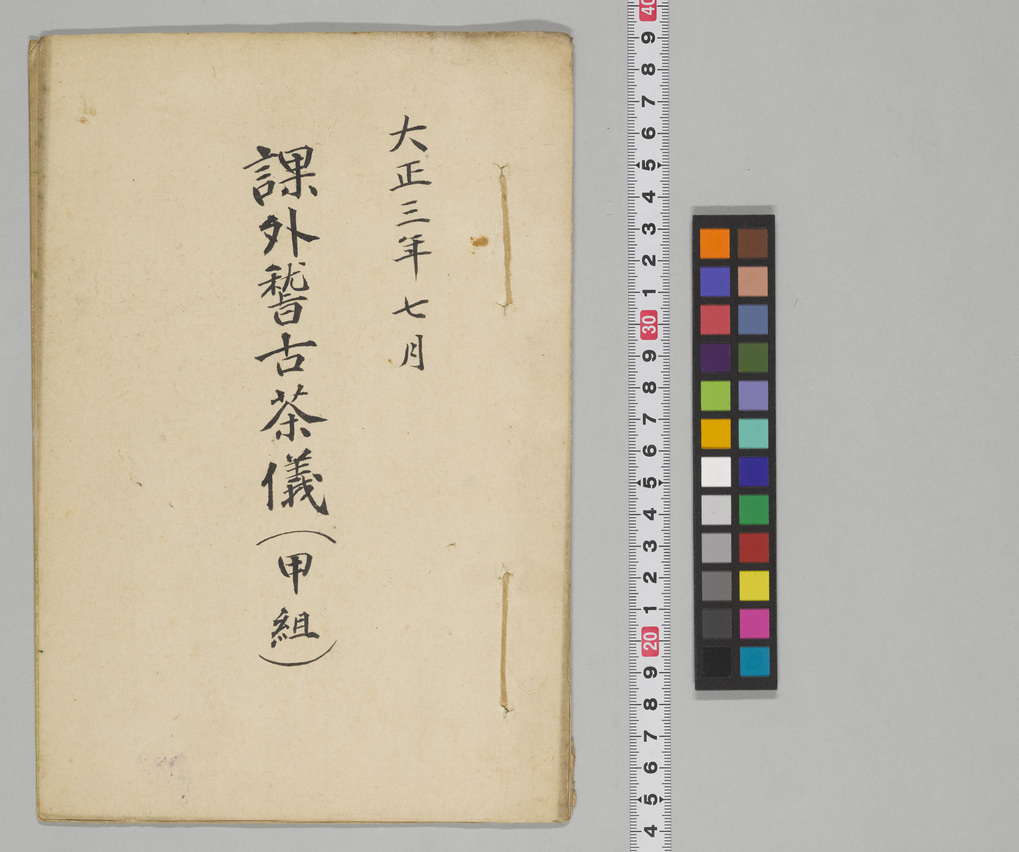 大正三年七月
課外稽古茶儀（甲組）
40
9
8
7
6
5
4
3
2
1
30
9
8
7
6
5
4
3
2
1
20
9
8
7
6
5
4